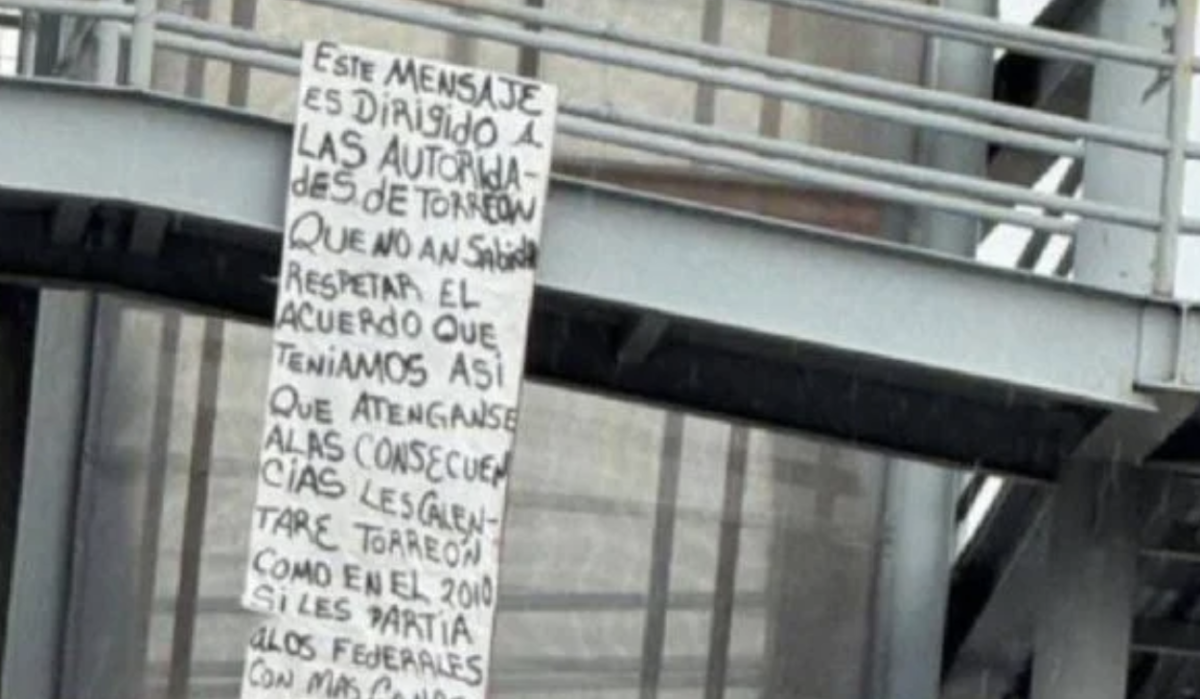 ESTE MENSAJE
ES DIRIGIDO A
LAS AUTORIDA-
DES DE TORREÓN
QUE NO AN SABIDO
RESPETAR EL
ACUERDO QUE
TENIAMOS ASÍ
QUE ATENGANSE
ALAS CONSECUEN
CIAS LES CALEN-
TARE TORREÓN
COMO EN EL 2010
SI LES PARTIA
ALOS FEDERALES
CON MAS